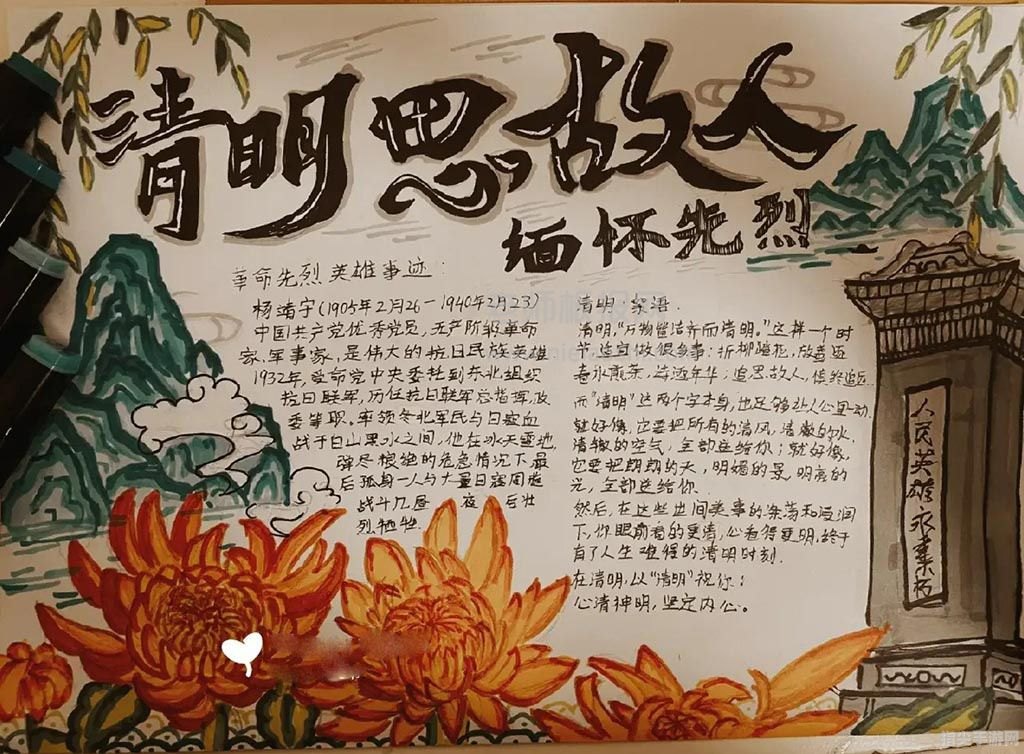 清明思故人
缅怀先烈
革命先烈英雄事迹:
杨靖宇(1905年2月26-1940年2月23)
中国共产党优秀党员,无产阶级革命
家.军事家,是伟大的抗日民族英雄
1932年,受命党中央委托到东北组织
抗日联军,历任抗日联军总指挥政
委等职。率领东北军民与日寇血
战于白山黑水之间,他在冰天雪地
弹尽粮绝的危急情况下最
后孤身一人与大量日寇周旋
战斗几昼夜后壮
烈牺牲.
清明·家语.
清明,"万物皆洁齐而清明。"这样一个时
节,适宜做很多事:折柳踏花,放鸢
春水煎茶,追思故人,慎终追远
而"清明"这两个字本身,也足够让人心里一动.
就好像,它要把所有的清风,清澈的水,
清澈的空气,全部送给你;就好像,
它要把期期的天,明媚的景,明亮的
光,全部送给你.
然后,在这些世间美事的涤荡和浸润
下,你眼前看的更清,心看得更明,终于
有了人生难得的清明时刻.
在清明,以"清明"祝你:
心清神明,坚定内心。
人民英雄永垂不朽
指尖手游网